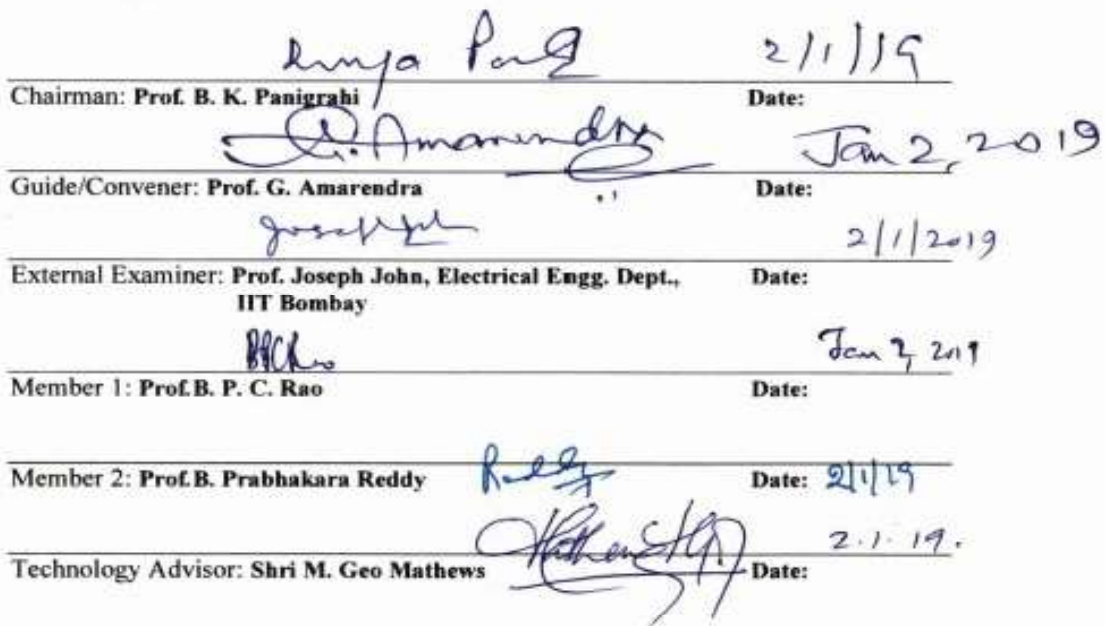 2/1/19
Chairman: Prof. B. K. Panigrahi Date:
G. Amarendra Jan 2, 2019
Guide/Convener: Prof. G. Amarendra Date:
2/1/2019
External Examiner: Prof. Joseph John, Electrical Engg. Dept., Date:
IIT Bombay
BPCRao Jan 2, 2019
Member 1: Prof.B. P. C. Rao Date:
Member 2: Prof.B. Prabhakara Reddy Reddy Date: 2/1/19
2.1.19.
Technology Advisor: Shri M. Geo Mathews Date: